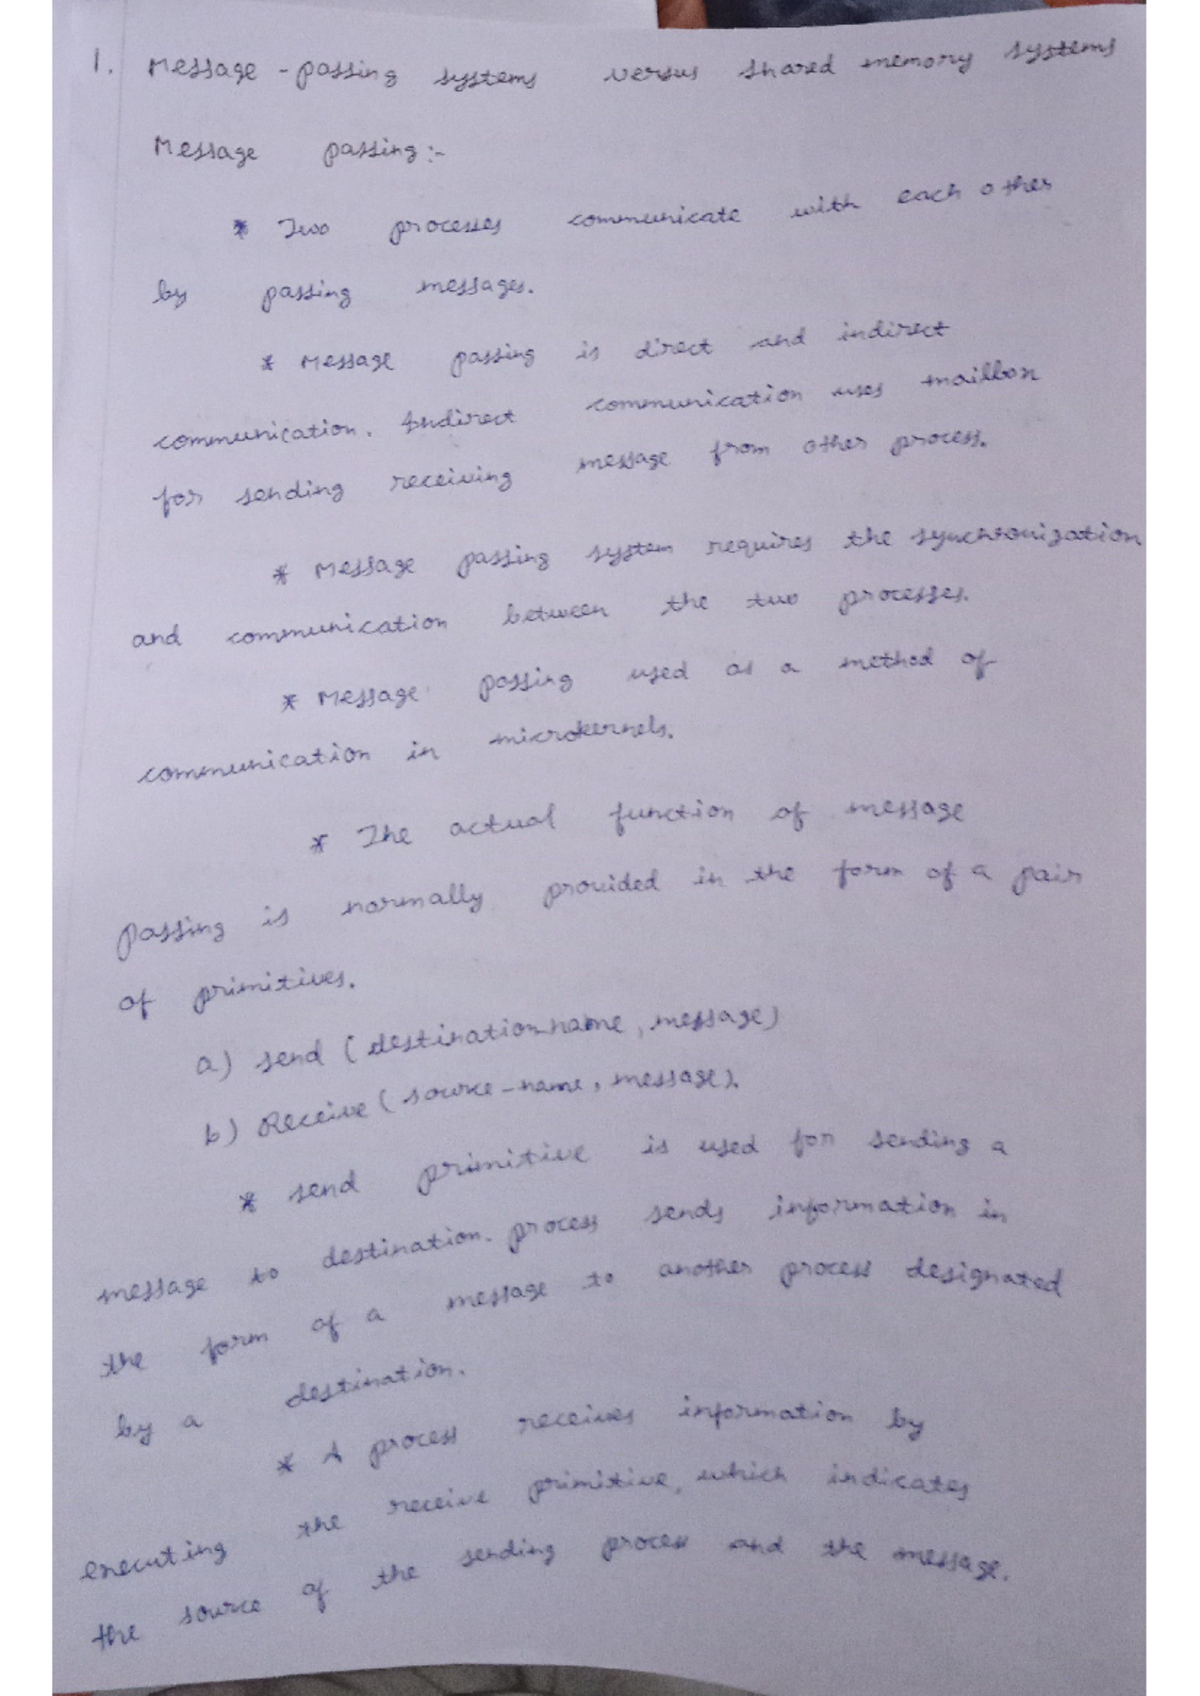 1. Message-passing systems versus shared memory systems
Message passing:-
* Two processes communicate with each other
by passing messages.
* Message passing is direct and indirect
communication. Indirect communication uses mailbox
for sending receiving message from other process.
* Message passing system requires the synchronization
and communication between the two processes.
* Message passing used as a method of
communication in microkernels.
* The actual function of message
passing is normally provided in the form of a pair
of primitives.
a) send (destination-name, message)
b) Receive (source-name, message).
* send primitive is used for sending a
message to destination. process sends information in
the form of a message to another process designated
by a destination.
* A process receives information by
executing the receive primitive, which indicates
the source of the sending process and the message.